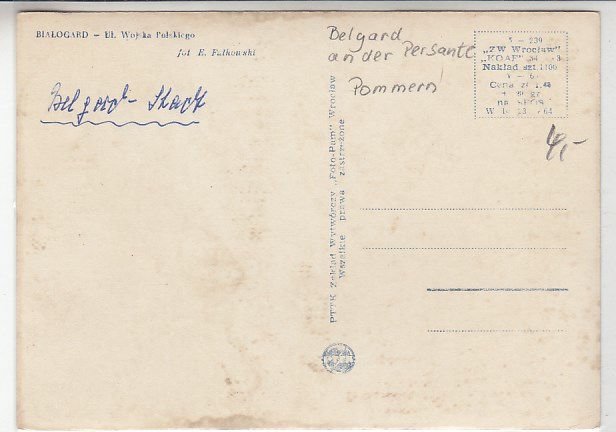 BIAŁOGARD – Ul. Wojska Polskiego
fot E. Falkowski
Belgard - Stadt
Belgard
an der Persante
Pommern
S - 239
„ZW Wrocław”
Nakład szt
Cena zł
PTTK Zakład Wytwórczy „Foto-Pam” Wrocław
Wszelkie prawa zastrzeżone
4,-
PTTK